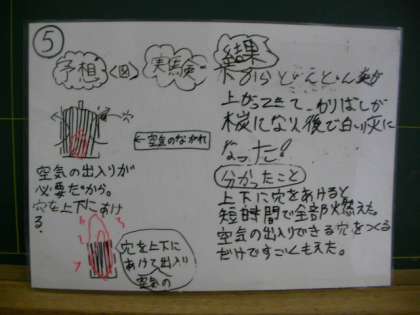 ⑤
予想 <図> 実験
←空気のながれ
空気の出入りが
必要だから。
穴を上下にあけ
る。
穴を上下に
あけて出入り
空気の
結果
下からどんどん炎が
上がってきて、わりばしが
木炭になり後で白い灰に
なった!
分かったこと
上下に穴をあけると
短時間で全部燃えた。
空気の出入りできる穴をつくる
だけですごくもえた。